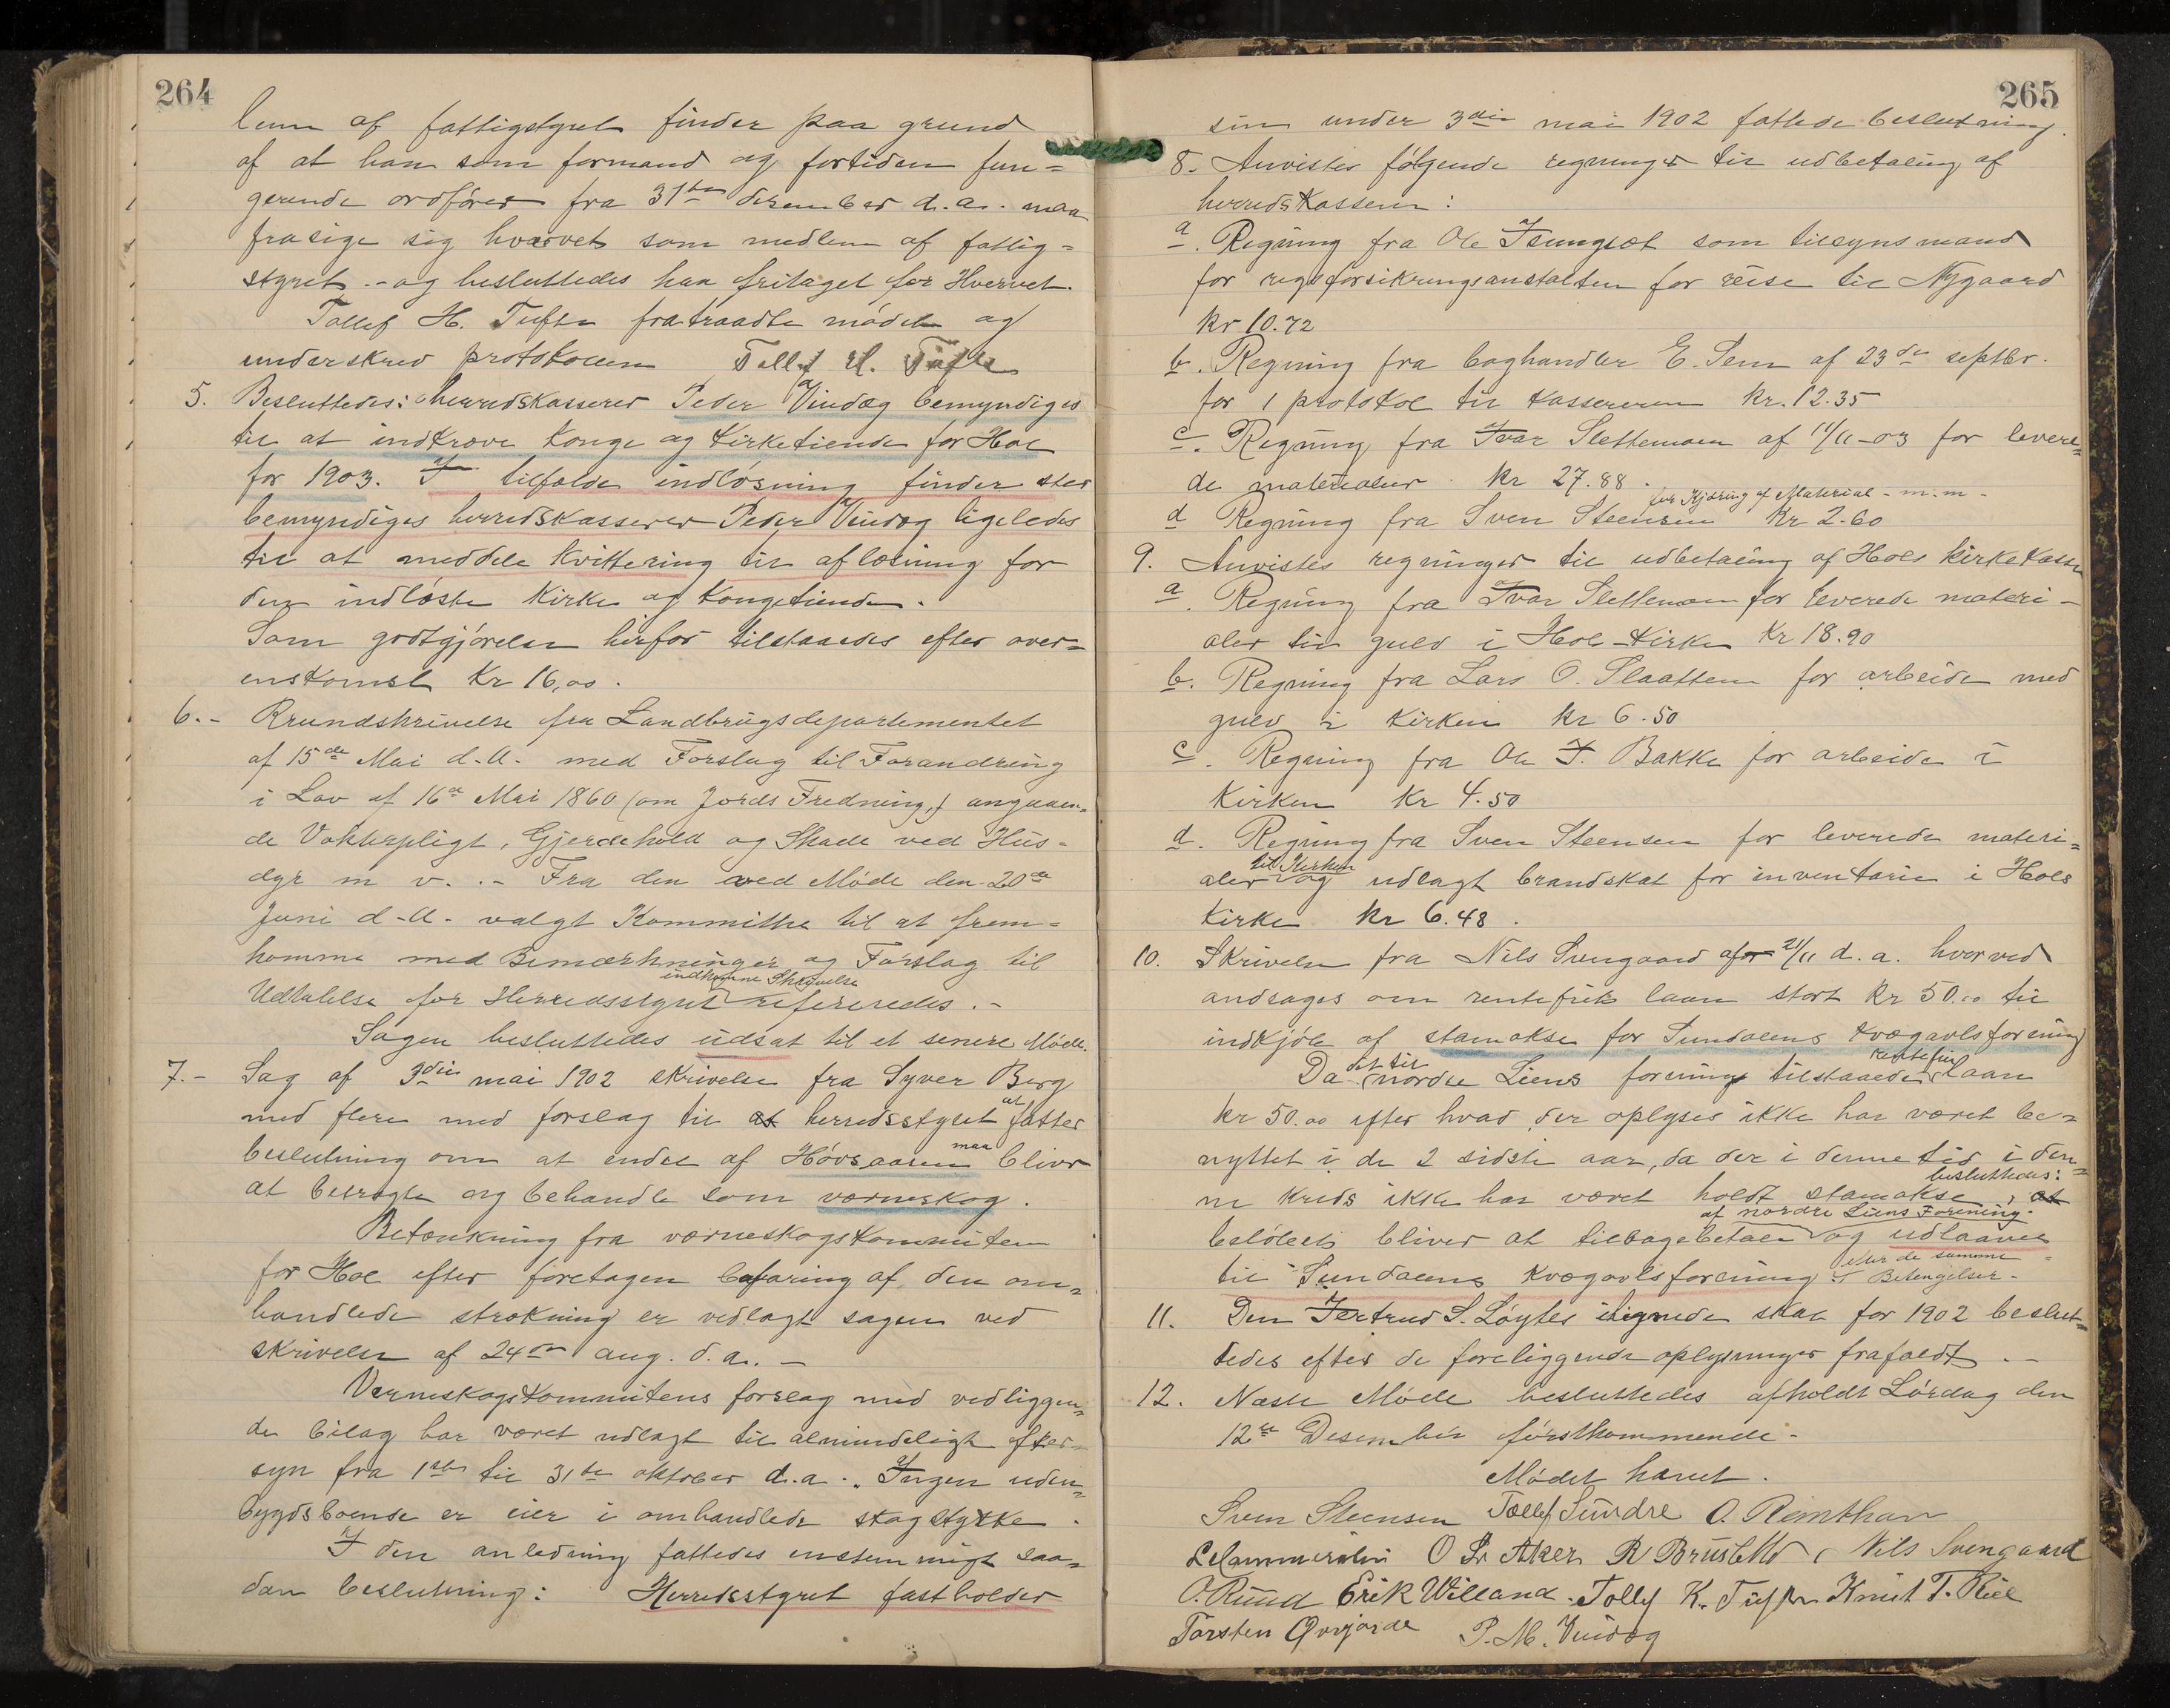 264
lem af fattigstyret finder paa grund
af at han som formand og fortiden fun=
gerende ordfører fra 31te desember d.a. maa
frasige sig hvervet som medlem af fattig=
styret. - og besluttedes han fritaget for Hvervet.
Tollef H. Tufte fratraadte mødet og
underskrev protokollen Tollef H. Tufte
5. Besluttedes: herredskasserer Peder Vindæg bemyndiges
til at indkræve konge og kirketiende for Hol
for 1903. I tilfælde indløsning finder sted
bemyndiges herredskasserer Peder Vindæg ligeledes
til at meddele kvittering til aflæsning for
den indløste kirke og kongetiende.
Som godtgjørelse herfor tilstaaedes efter over=
enskomst Kr 16,00.
6. - Rundskrivelse fra Landbrugsdepartementet
af 15de Mai d.A. med Forslag til Forandring
i Lov af 16de Mai 1860 (om Jords Fredning,) angaaen=
de Vokterpligt, Gjerdehold og Skade ved Hus=
dyr m v. - Fra den ved Møde den 20de
Juni d.A. valgt Kommitte til at frem=
komme med Bemærkninger og Forslag til
Udtalelse for Herredsstyret indkomne Skrivelse refereredes. -
Sagen besluttedes udsat til et senere Møde.
7. - Sag af 3die mai 1902 skrivelse fra Syver Berg
med flere med forslag til at herredsstyret at fatter
beslutning om at endel af Høvsaasen maa bliver
at betragte og behandle som værneskog.
Betænkning fra værneskogskommiteen
for Hol efter foretagen befaring af den om=
handlede strækning er vedlagt sagen ved
skrivelse af 24de aug. d.a. -
Værneskogskommitens forslag med vedliggen=
de bilag har været udlagt til almindeligt efter=
syn fra 1ste til 31te oktober d.a. Ingen uden=
bygdsboende er eier i omhandlede skogstykke.
I den anledning fattedes enstemmigt saa=
dan beslutning: Herredsstyret fastholder
265
sin under 3die mai 1902 fattede beslutning.
8. Anvistes følgende regninger til udbetaling af
herredskassen:
a. Regning fra Ole Isungset som tilsynsmand
for rigsforsikringsanstalten for reise til Nygaard
kr 10.72
b. Regning fra boghandler E. Sem af 23de septbr.
for 1 protokol til kassereren kr. 12.35
c. Regning fra Ivar Slettemoen af 11/11-03 for levere=
de materialier. kr 27.88.
d Regning fra Sven Steensen for Kjøring af Material - m.m. - Kr 2.60
9. Anvistes regninger til udbetaling af Hols kirkekasse
a. Regning fra Ivar Slettemoen for leverede materi-
aler til gulv i Hol-kirke Kr 18.90
b. Regning fra Lars O. Slaatten for arbeide med
gulv i kirken kr 6.50
c. Regning fra Ole I. Bakke for arbeide i
kirken Kr 4.50
d. Regning fra Sven Steensen for leverede materi=
aler til Kirken og udlagt brandskat for inventarie i Hols
kirke kr 6.48.
10. Skrivelse fra Nils Svengaard af 21/11 d.a. hvorved
andsages om rentefrit laan stort kr 50.00 til
indkjøb af stamokse for Sundalens kvægavlsforening
Da det til nordre Liens forening tilstaaede rentefri laan
kr 50.00 efter hvad der oplyses ikke har været be=
nyttet i de 2 sidste aar, da der i denne tid i den=
ne kreds ikke har været holdt stamokse, besluttedes: at
beløbet bliver at tilbagebetale af nordre Liens Forening. og udlaanes
til Sundalens kvægavlsforening efter de samme Betingelser.
11. Den Jertrud S. Løytes ilignede skat for 1902 beslut=
tedes efter de foreliggende oplysninger frafaldt. -
12. Næste Møde besluttedes afholdt Lørdag den
12te Desember førstkommende.
Mødet hævet.
Sven Steensen Tollef Sundre O. Reinthon
L Hammersbøn O S. Aker R Brusletto Nils Svengaard
O. Ruud Erik Willand. Tollef K. Tufte Knut T. Riil
Torsten Øvrjorde P. M. Vindæg